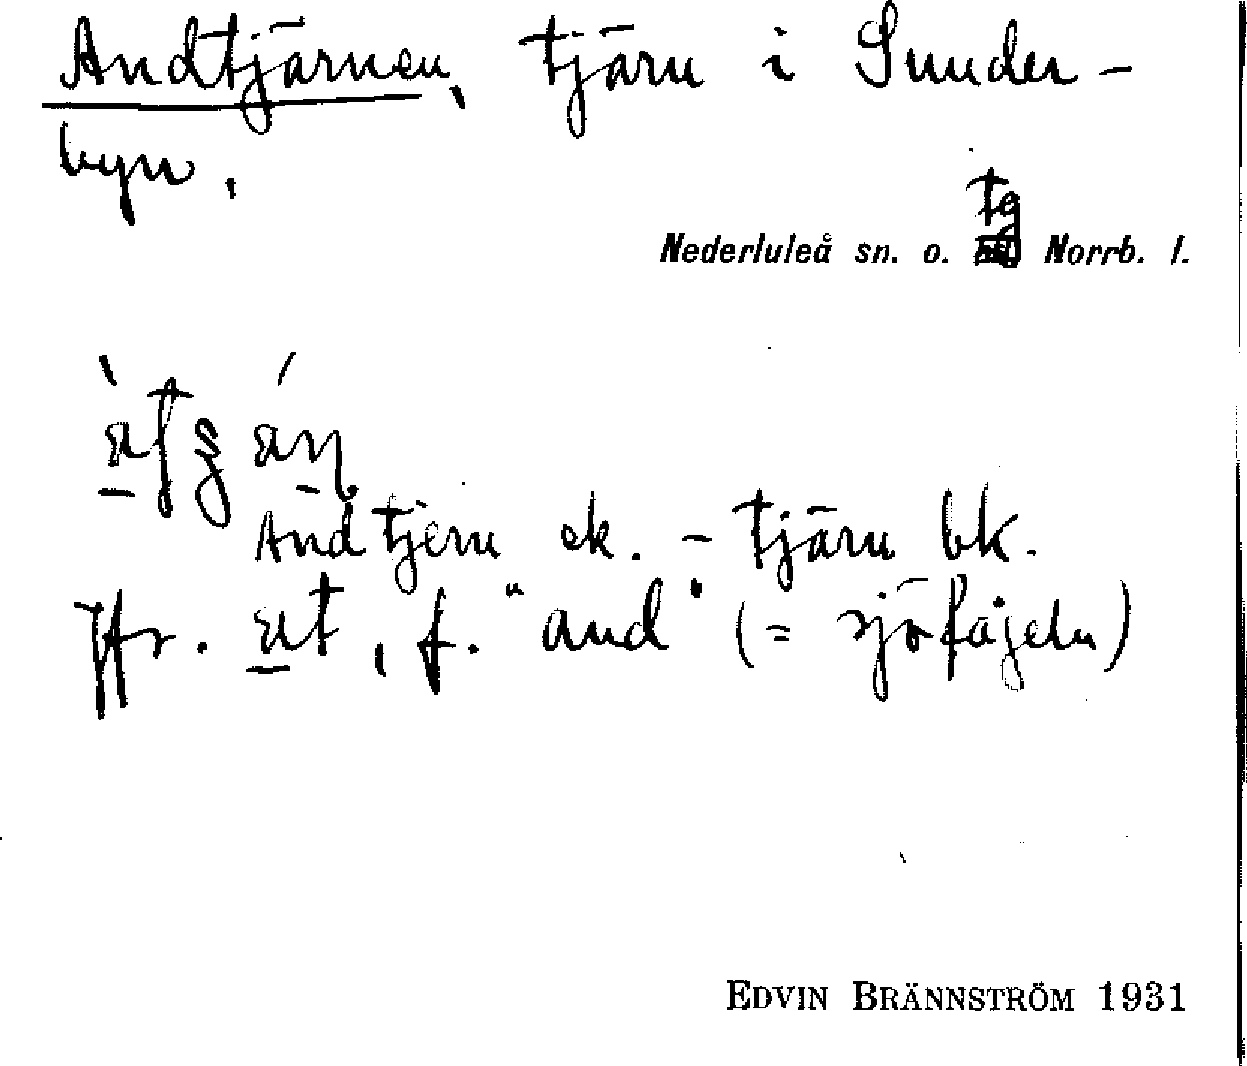 Andtjärnen, tjärn i Sunder-
byn.
tg
Nederluleå sn. o. Norrb. l.
Andtjern ek. - tjärn bk.
Jfr. at, f. "and" (= sjöfågeln)
EDVIN BRÄNNSTRÖM 1931